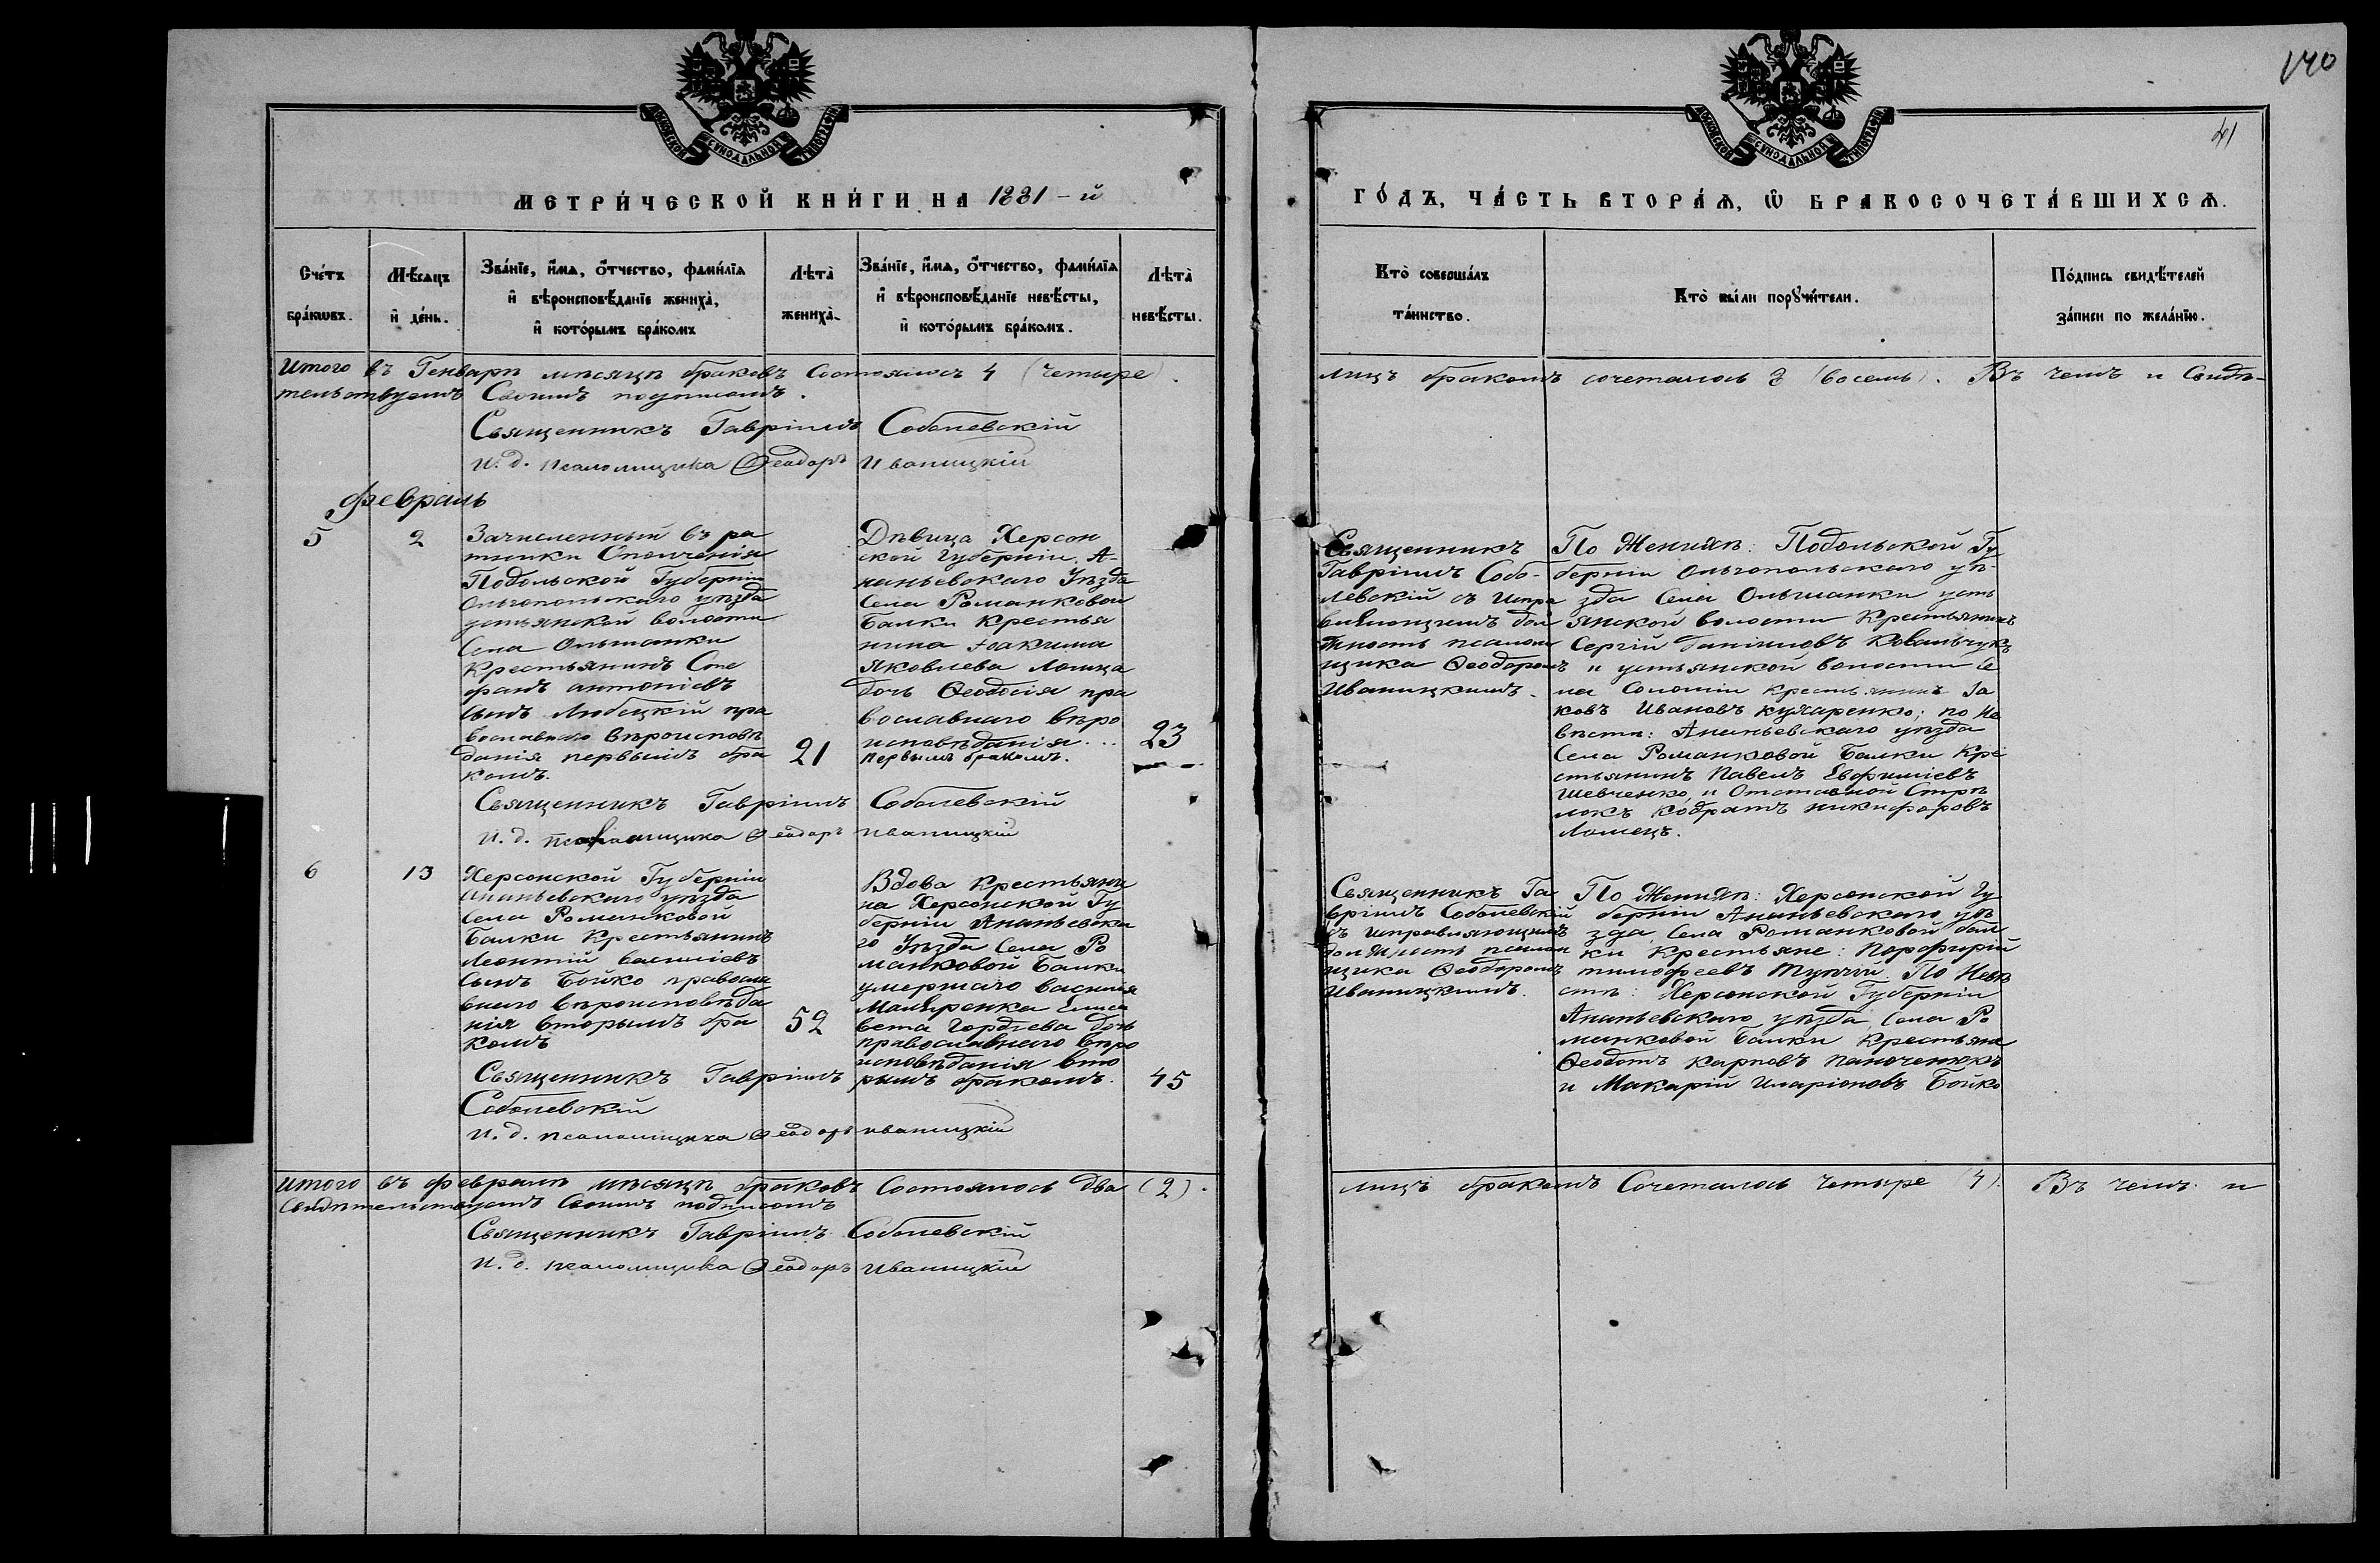 140
41
МОСКОВСКОЙ СѴНОДАЛЬНОЙ ТИПОГРАФІИ
МОСКОВСКОЙ СѴНОДАЛЬНОЙ ТИПОГРАФІИ
МЕТРИ́ЧЕСКОЙ КНИ́ГИ НА 1881-й
ГО́ДЪ, ЧА́СТЬ ВТОРА́Ѧ, Ѡ БРАКОСОЧЕТА́ВШИХСѦ.
Сче́тъ бра́кѡвъ.
Мѣ́сѧцъ и де́нь.
Зва́нїе, и́мѧ, о́тчество, фами́лїѧ и вѣроисповѣ́данїе жениха̀, и кото́рымъ бра́комъ
Лѣта̀ жениха̀.
Зва́нїе, и́мѧ, о́тчество, фами́лїѧ и вѣроисповѣ́данїе невѣ́сты, и кото́рымъ бра́комъ.
Лѣта̀ невѣ́сты.
Кто̀ соверша́лъ та́инство.
Кто̀ бы́ли порꙋчи́тели.
По́дпись свидѣ́телей за́писи по жела́нїю.
Итого въ Генварѣ мѣсяцѣ браковъ состоялось 4 (четыре).
лицъ бракомъ сочеталось 8 (восемь). Въ чемъ и Свидѣ-
тельствуемъ Своимъ подписомъ.
Священникъ Гавріилъ Соболевскій
И. д. псаломщика Ѳеодоръ Иваницкій
Февраль
5
2
Зачисленный въ ра
тники Ополченія
Подольской Губерніи
Ольгопольскаго уѣзда
устьянской волости
Села Ольшанки
Крестьянинъ Сте
фанъ антоніевъ
сынъ Любецкій пра
вославнаго вѣроисповѣ
данія первымъ бра
комъ.
21
Дѣвица Херсон
ской Губерніи А-
наньевскаго Уѣзда
Села Романковой
Балки крестья
нина Іоакима
Яковлева Ломца
дочь Ѳеодосія пра
вославнаго вѣро
исповѣданія...
первымъ бракомъ.
23
Священникъ
Гавріилъ Собо-
левскій съ Испра
вляющимъ дол
жность псалом
щика Ѳеодоромъ
Иваницкимъ.
По Женихѣ: Подольской Гу
берніи Ольгопольскаго уѣ-
зда Села Ольшанки усть
янской волости Крестьянинъ
Сергій Ковальчукъ
и устьянской волости Се
ла крестьянинъ Іа
ковъ Ивановъ кухаренко; по Не
вѣстѣ: Ананьевскаго уѣзда
Села Романковой Балки Кре
стьянинъ Павелъ Евфиміевъ
Шевченко, и Отставной Стрѣ
локъ Кодратъ никифоровъ
Ломецъ.
Священникъ Гавріилъ Соболевскій
И. д. псаломщика Ѳеодоръ иваницкій
6
13
Херсонской Губерніи
Ананьевскаго уѣзда
Села Романковой
Балки Крестьянинъ
Леонтій василіевъ
сынъ Бойко правосла
внаго вѣроисповѣда
нія вторымъ бра
комъ
52
Вдова Крестьяни
на Херсонской Гу
берніи Ананьевска
го Уѣзда Села Ро
манковой Балки
умершаго василія
Маляренка Елиса
вета Гордѣева дочь
православнаго вѣро
исповѣданія вто
рымъ бракомъ.
45
Священникъ Га
вріилъ Соболевскій
съ исправляющимъ
должность псалом
щика Ѳеодоромъ
Иваницкимъ.
По Женихѣ: Херсонской Гу
берніи Ананьевскаго уѣ
зда Села Романковой бал
ки Крестьяне: Порфирій
тимофеевъ. По Невѣ
стѣ: Херсонской Губерніи
Ананьевскаго уѣзда, Села Ро
манковой Балки Крестьяне
Ѳеодотъ карповъ
и Макарій иларіоновъ Бойко
Священникъ Гавріилъ
Соболевскій
И. д. псаломщика Ѳеодоръ иваницкій
Итого въ февралѣ мѣсяцѣ браковъ состоялось два (2).
лицъ бракомъ Сочеталось четыре (4). Въ чемъ и
Свидѣтельствуемъ Своимъ подписомъ
Священникъ Гавріилъ Соболевскій
И. д. псаломщика Ѳеодоръ Иваницкій